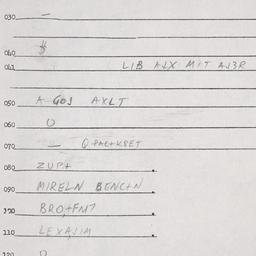 030
040 $
041 LIB AJX MIT AJ3R
050 A GOJ AXLT
060 O
070
080 ZUP+
090 MIRELN BENC+N
100 BRO,+FM7
110 LEXAJIM
120